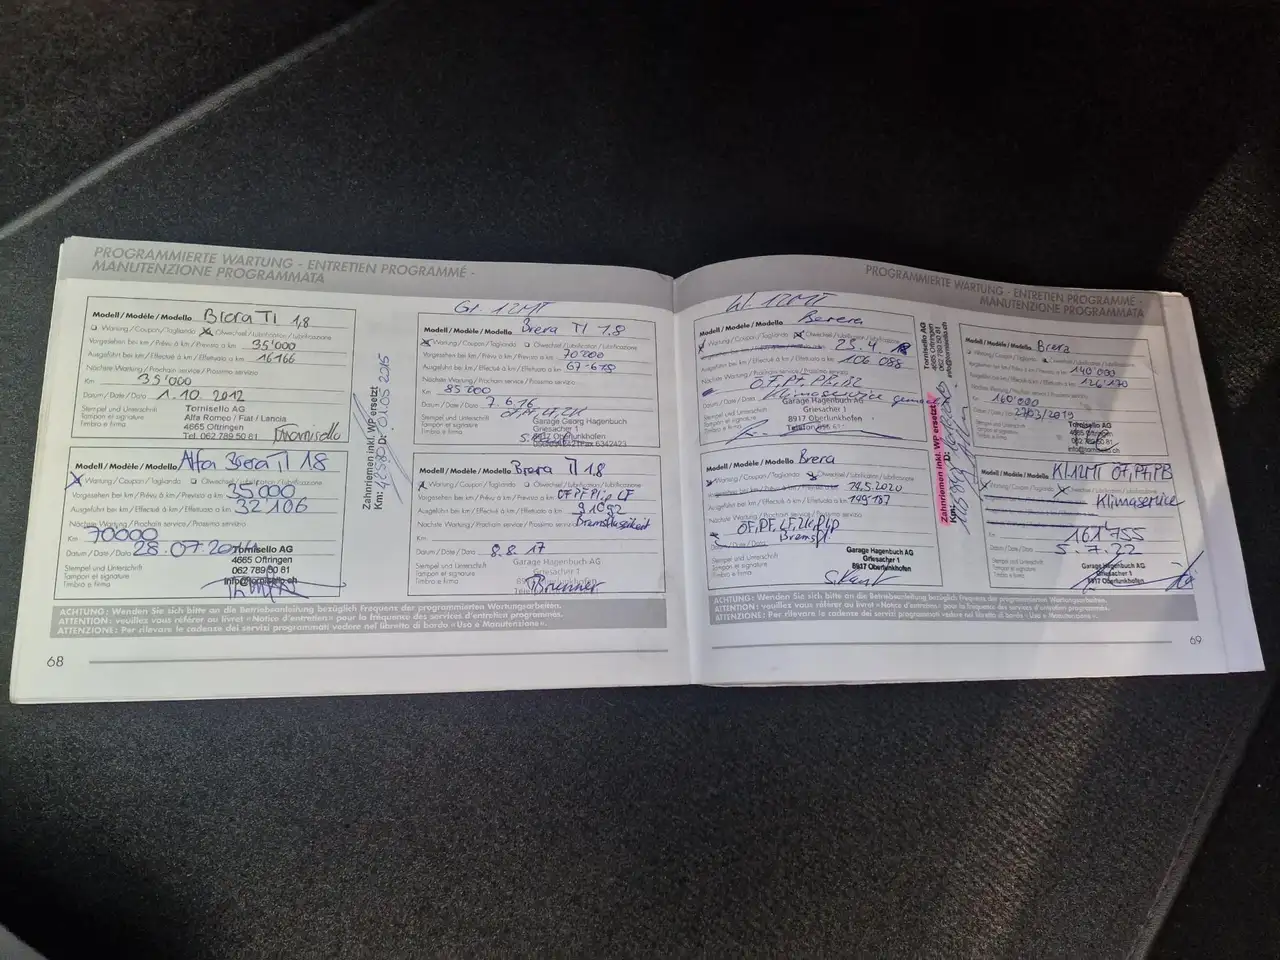 PROGRAMMIERTE WARTUNG - ENTRETIEN PROGRAMMÉ -
MANUTENZIONE PROGRAMMATA
Modell / Modèle / Modello Brera TI 1,8
Wartung / Coupon / Tagliando Ölwechsel / Lubrification / Lubrificazione
Vorgesehen bei km / Prévu à km / Previsto a km 35'000
Ausgeführt bei km / Effectué à km / Effettuato a km 16166
Nächste Wartung / Prochain service / Prossimo servizio
Km 35'000
Datum / Date / Data 1.10.2012
Stempel und Unterschrift
Tampon et signature
Timbro e firma
Tornisello AG
Alfa Romeo / Fiat / Lancia
4665 Oftringen
Tel. 062 789 50 81
Modell / Modèle / Modello Alfa Brera TI 1.8
Wartung / Coupon / Tagliando Ölwechsel / Lubrification / Lubrificazione
Vorgesehen bei km / Prévu à km / Previsto a km 35000
Ausgeführt bei km / Effectué à km / Effettuato a km 32106
Nächste Wartung / Prochain service / Prossimo servizio
Km 70000
Datum / Date / Data 28.07.2014
Stempel und Unterschrift
Tampon et signature
Timbro e firma
Tornisello AG
4665 Oftringen
062 789 50 81
info@tornisello.ch
Zahnriemen inkl. WP ersetzt
Km: D: 01.05.2015
Gr. 12MT
Modell / Modèle / Modello Brera TI 1,8
Wartung / Coupon / Tagliando Ölwechsel / Lubrification / Lubrificazione
Vorgesehen bei km / Prévu à km / Previsto a km 70'000
Ausgeführt bei km / Effectué à km / Effettuato a km 67'675
Nächste Wartung / Prochain service / Prossimo servizio
Km 85'000
Datum / Date / Data 7.6.16
Stempel und Unterschrift
Tampon et signature
Timbro e firma
Garage Georg Hagenbuch
Griesacher 1
8917 Oberlunkhofen
Modell / Modèle / Modello Brera TI 1.8
Wartung / Coupon / Tagliando Ölwechsel / Lubrification / Lubrificazione
Vorgesehen bei km / Prévu à km / Previsto a km OF PF LF
Ausgeführt bei km / Effectué à km / Effettuato a km 91092
Nächste Wartung / Prochain service / Prossimo servizio Bremsflüssigkeit
Km
Datum / Date / Data 8.8.17
Stempel und Unterschrift
Tampon et signature
Timbro e firma
Garage Hagenbuch AG
Griesacher 1
Brunner
ACHTUNG: Wenden Sie sich bitte an die Betriebsanleitung bezüglich Frequenz der programmierten Wartungsarbeiten.
ATTENTION: veuillez vous référer au livret «Notice d'entretien» pour la fréquence des services d'entretien programmés.
ATTENZIONE: Per rilevare le cadenze dei servizi programmati vedere nel libretto di bordo «Uso e Manutenzione».
68
PROGRAMMIERTE WARTUNG - ENTRETIEN PROGRAMMÉ -
MANUTENZIONE PROGRAMMATA
12MT
Modell / Modèle / Modello Berera
Wartung / Coupon / Tagliando Ölwechsel / Lubrification / Lubrificazione
25.4.18
106 088
Nächste Wartung / Prochain service / Prossimo servizio
Klimaservice
Datum / Date / Data
Stempel und Unterschrift
Tampon et signature
Timbro e firma
Garage Hagenbuch AG
Griesacher 1
8917 Oberlunkhofen
Modell / Modèle / Modello Brera
Wartung / Coupon / Tagliando Ölwechsel / Lubrification / Lubrificazione
.5.2020
Ausgeführt bei km / Effectué à km / Effettuato a km
Nächste Wartung / Prochain service / Prossimo servizio
OF, PF, LF,
Bremsfl.
Stempel und Unterschrift
Tampon et signature
Timbro e firma
Garage Hagenbuch AG
Griesacher 1
8917 Oberlunkhofen
Tornisello AG
4665 Oftringen
062 789 50 81
info@tornisello.ch
Zahnriemen inkl. WP ersetzt
Km: D:
Modell / Modèle / Modello Brera
Wartung / Coupon / Tagliando Ölwechsel / Lubrification / Lubrificazione
Vorgesehen bei km / Prévu à km / Previsto a km 140'000
Ausgeführt bei km / Effectué à km / Effettuato a km 126'170
Nächste Wartung / Prochain service / Prossimo servizio
Km 160'000
Datum / Date / Data 27/03/2019
Stempel und Unterschrift
Tampon et signature
Timbro e firma
Tornisello AG
4665 Oftringen
062 789 50 81
info@tornisello.ch
Modell / Modèle / Modello Kl.12MT OF, PF, PB
Klimaservice
Km 161'755
Datum / Date / Data 5.7.22
Stempel und Unterschrift
Tampon et signature
Timbro e firma
Garage Hagenbuch AG
Griesacher 1
8917 Oberlunkhofen
ACHTUNG: Wenden Sie sich bitte an die Betriebsanleitung bezüglich Frequenz der programmierten Wartungsarbeiten.
ATTENTION: veuillez vous référer au livret «Notice d'entretien» pour la fréquence des services d'entretien programmés.
ATTENZIONE: Per rilevare le cadenze dei servizi programmati vedere nel libretto di bordo «Uso e Manutenzione».
69